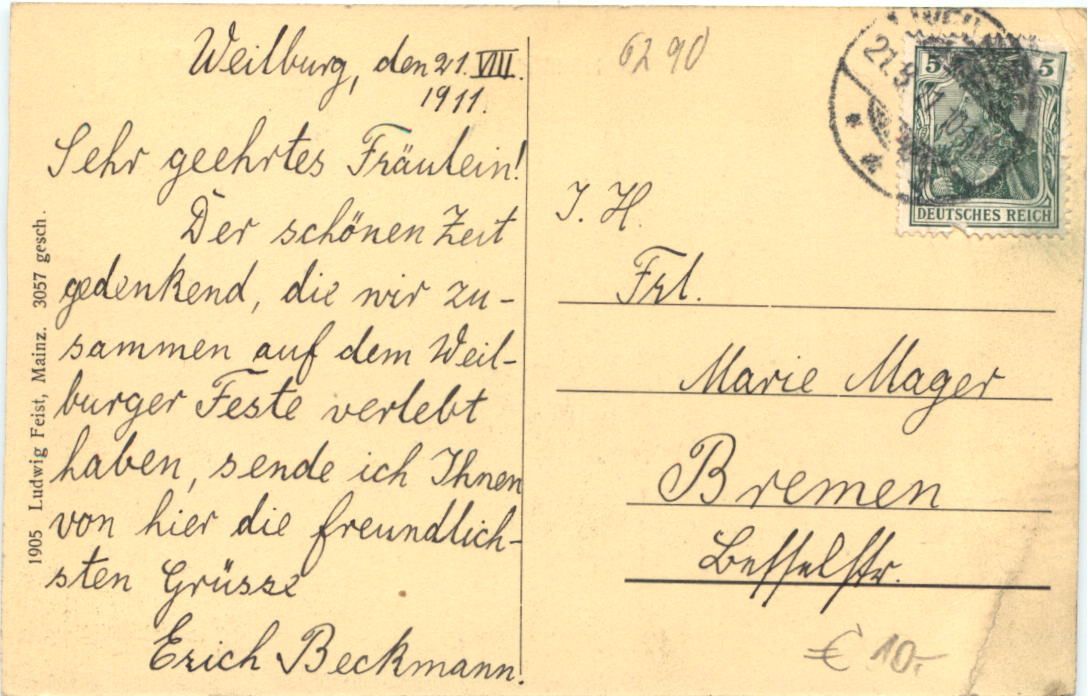 Weilburg, den 21. VIII.
1911.
Sehr geehrtes Fräulein!
Der schönen Zeit
gedenkend, die wir zu-
sammen auf dem Weil-
burger Feste verlebt
haben, sende ich Ihnen
von hier die freundlich-
sten Grüsse
Erich Beckmann.
1905 Ludwig Feist, Mainz. 3057 gesch.
6290
21.8.11
5 5
DEUTSCHES REICH
J. H.
Frl.
Marie Mager
Bremen
Besselstr.
€ 10,-